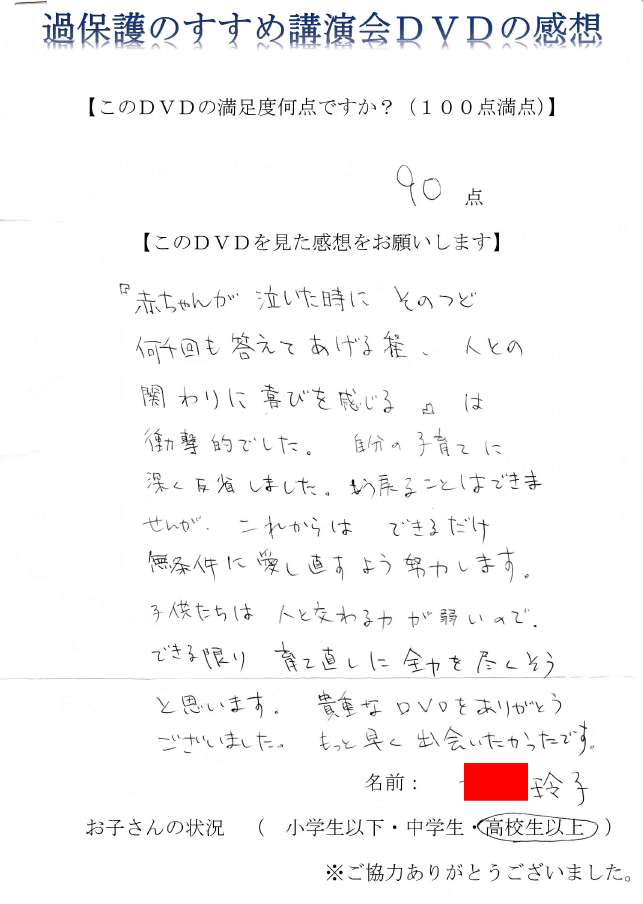 過保護のすすめ講演会DVDの感想
【このDVDの満足度何点ですか？（１００点満点）】
90 点
【このDVDを見た感想をお願いします】
『赤ちゃんが 泣いた時に そのつど
何千回も 答えて あげる程、人との
関わりに 喜びを 感じる 』 は
衝撃的でした。 自分の子育てに
深く反省しました。もう戻ることはできま
せんが、これからは できるだけ
無条件に愛し直すよう努力します。
子供たちは 人と交わる力が弱いので、
できる限り 育て直しに 全力を尽くそう
と思います。 貴重なDVDをありがとう
ございました。 もっと早く出会いたかったです。
名前： 玲子
お子さんの状況 （ 小学生以下・中学生・高校生以上 ）
※ご協力ありがとうございました。